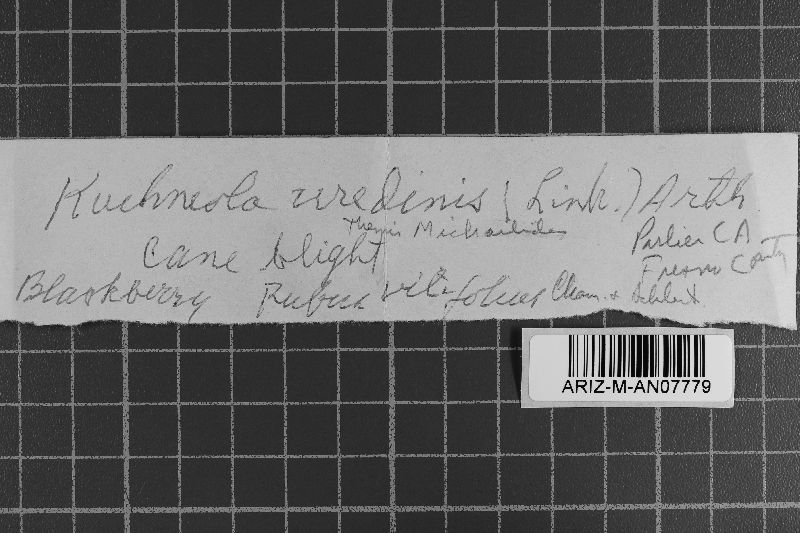 Kuehneola uredinis (Link.) Arth
Themis Michailides
Cane blight
Parlier CA
Fresno County
Blackberry Rubus vitifolius Cham. + Schlecht.
ARIZ-M-AN07779